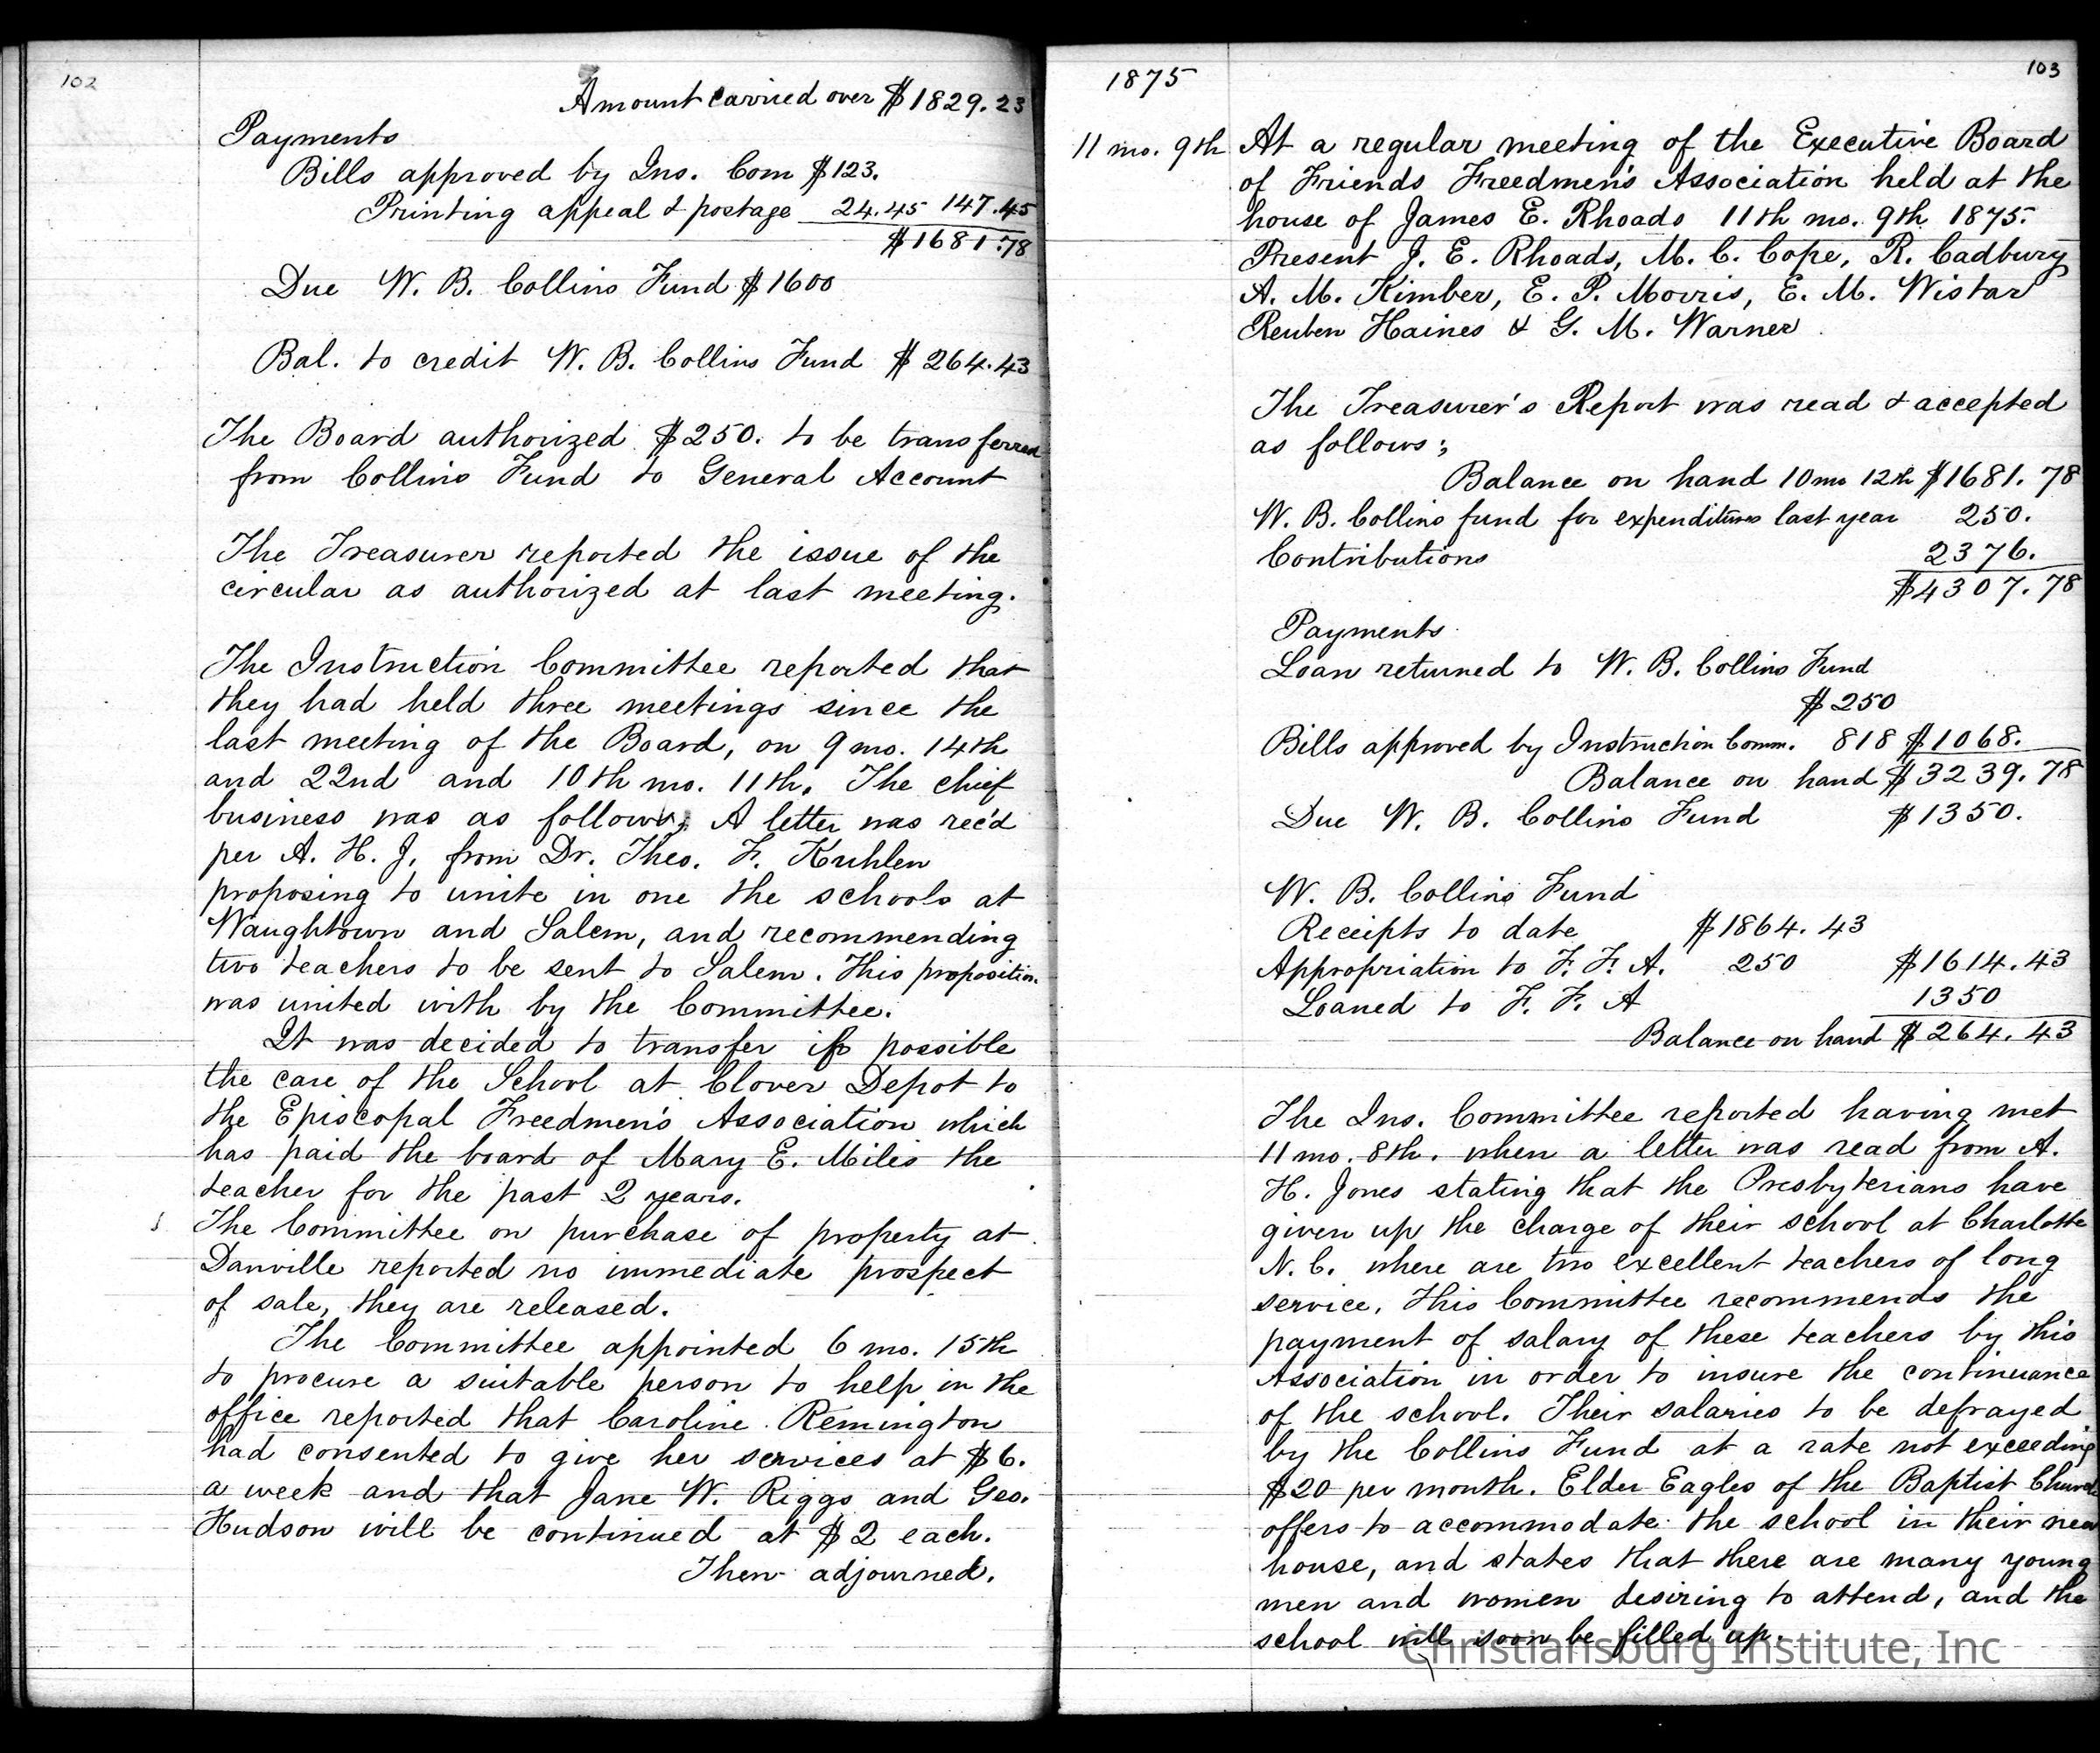 102
Amount carried over $1829.23
Payments
Bills approved by Ins. Com $123.
Printing appeal & postage 24.45 147.45
$1681.78
Due W. B. Collins Fund $1600
Bal. to credit W. B. Collins Fund $264.43
The Board authorized $250. to be transferred
from Collins Fund to General Account
The Treasurer reported the issue of the
circular as authorized at last meeting.
The Instruction Committee reported that
they had held three meetings since the
last meeting of the Board, on 9 mo. 14th
and 22nd and 10th mo. 11th. The chief
business was as follows; A letter was rec'd
per A. H. J. from Dr. Theo. F. Kuhlen
proposing to unite in one the schools at
Waughtown and Salem, and recommending
two teachers to be sent to Salem. This proposition
was united with by the Committee.
It was decided to transfer if possible
the care of the School at Clover Depot to
the Episcopal Freedmen's Association which
has paid the board of Mary E. Miles the
teacher for the past 2 years.
The Committee on purchase of property at
Danville reported no immediate prospect
of sale, they are released.
The Committee appointed 6 mo. 15th
to procure a suitable person to help in the
office reported that Caroline Remington
had consented to give her services at $6.
a week and that Jane W. Riggs and Geo.
Hudson will be continued at $2 each.
Then adjourned.
1875
103
11 mo. 9th At a regular meeting of the Executive Board
of Friends Freedmen's Association held at the
house of James E. Rhoads 11th mo. 9th 1875.
Present J. E. Rhoads, M. C. Cope, R. Cadbury
A. M. Kimber, E. P. Morris, E. M. Wistar
Reuben Haines & G. M. Warner
The Treasurer's Report was read & accepted
as follows;
Balance on hand 10 mo 12th $1681.78
W. B. Collins fund for expenditures last year 250.
Contributions 2376.
$4307.78
Payments
Loan returned to W. B. Collins Fund
$250
Bills approved by Instruction Comm. 818 $1068.
Balance on hand $3239.78
Due W. B. Collins Fund $1350.
W. B. Collins Fund
Receipts to date $1864.43
Appropriation to F. F. A. 250 $1614.43
Loaned to F. F. A 1350
Balance on hand $264.43
The Ins. Committee reported having met
11 mo. 8th. when a letter was read from A.
H. Jones stating that the Presbyterians have
given up the charge of their school at Charlotte
N. C. where are two excellent teachers of long
service. This Committee recommends the
payment of salary of these teachers by this
Association in order to insure the continuance
of the school. Their salaries to be defrayed
by the Collins Fund at a rate not exceeding
$20 per month. Elder Eagles of the Baptist Church
offers to accommodate the school in their new
house, and states that there are many young
men and women desiring to attend, and the
school will soon be filled up.
Christiansburg Institute, Inc